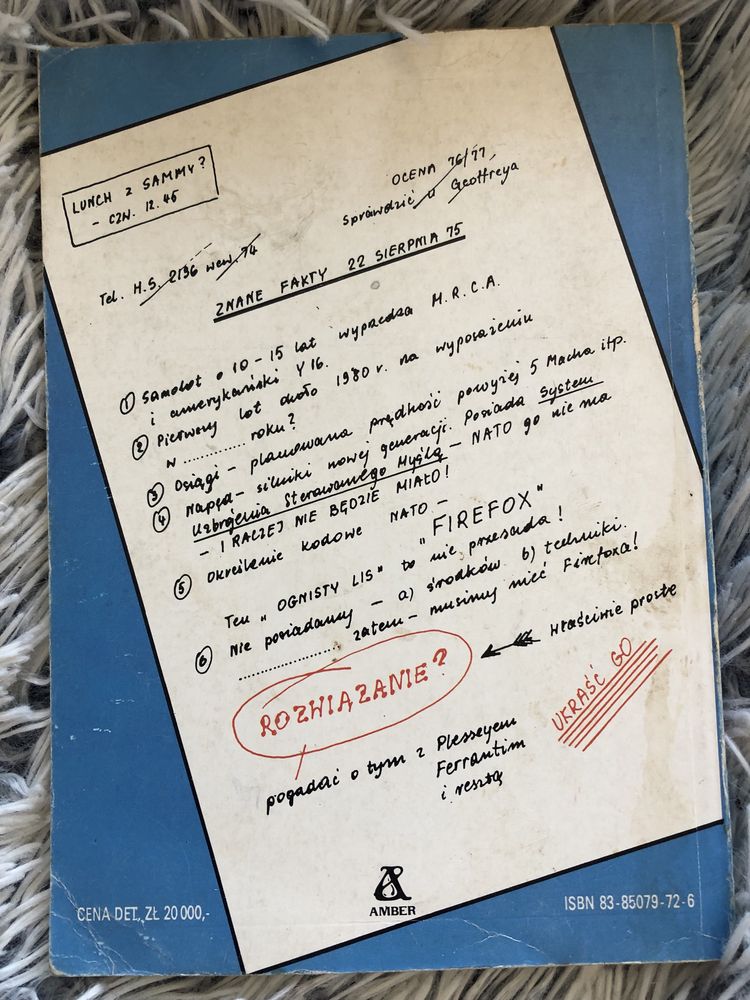 LUNCH Z SAMMY?
- CZW. 12.45
OCENA 76/77,
sprawdzić u Geoffreya
Tel. H.S. 2136 wew. 74
ZNANE FAKTY 22 SIERPNIA 75
① Samolot o 10-15 lat wyprzedza M.R.C.A.
i amerykański Y16.
② Pierwszy lot około 1980 r. na wyposażeniu
w ............ roku?
③ Osiągi - planowana prędkość powyżej 5 Macha itp.
④ Napęd - silniki nowej generacji. Posiada System
Uzbrojenia Sterowanego Myślą - NATO go nie ma
- I RACZEJ NIE BĘDZIE MIAŁO!
⑤ Określenie kodowe NATO -
"FIREFOX"
Ten „OGNISTY LIS" to nie przesada!
⑥ Nie posiadamy - a) środków b) techniki.
.................. zatem - musimy mieć Firefoxa!
ROZWIĄZANIE?
Właściwie proste
UKRAŚĆ GO
pogadać o tym z Plesseyem
Ferrantim
i resztą
AMBER
CENA DET. ZŁ 20 000,-
ISBN 83-85079-72-6